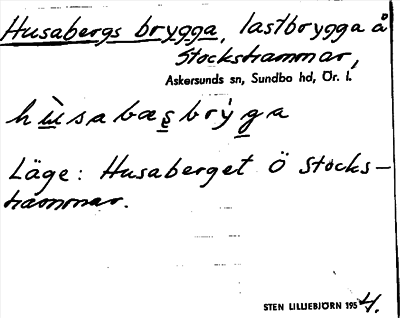 Husabergs brygga, lastbrygga å
Stockshammar,
Askersunds sn, Sundbo hd, Ör. l.
hùsabæsbrýga
Läge: Husaberget Ö Stocks-
hammar.
STEN LILLIEBJÖRN 1954.